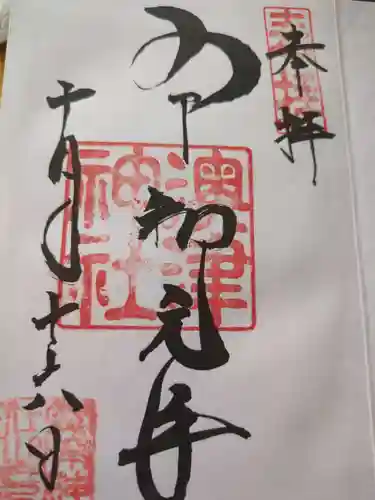 奉拝
令和元年
十月二十六日
澳津
神社